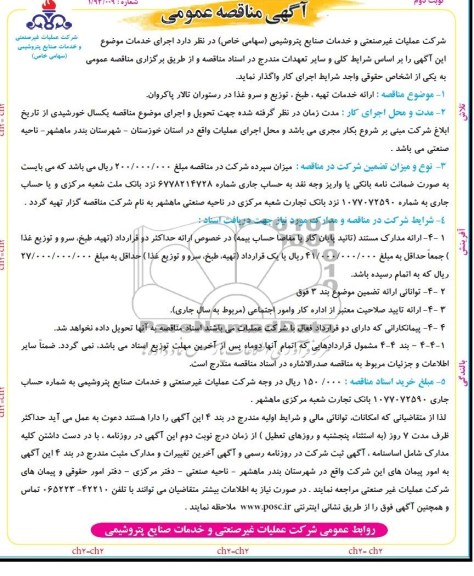 نوبت دوم
شماره : ۹۲/۰۰۹/۱
آگهی مناقصه عمومی
شرکت عملیات غیرصنعتی
و خدمات صنایع پتروشیمی
(سهامی خاص)
شرکت عملیات غیرصنعتی و خدمات صنایع پتروشیمی (سهامی خاص) در نظر دارد اجرای خدمات موضوع
این آگهی را بر اساس شرایط کلی و سایر تعهدات مندرج در اسناد مناقصه و از طریق برگزاری مناقصه عمومی
به یکی از اشخاص حقوقی واجد شرایط اجرای کار واگذار نماید.
۱- موضوع مناقصه : ارائه خدمات تهیه ، طبخ ، توزیع و سرو غذا در رستوران تالار پاکروان.
۲- مدت و محل اجرای کار : مدت زمان در نظر گرفته شده جهت تحویل و اجرای موضوع مناقصه یکسال خورشیدی از تاریخ
ابلاغ شرکت مبنی بر شروع بکار مجری می باشد و محل اجرای عملیات واقع در استان خوزستان - شهرستان بندر ماهشهر- ناحیه
صنعتی می باشد .
۳- نوع و میزان تضمین شرکت در مناقصه : میزان سپرده شرکت در مناقصه مبلغ ۲۰۰/۰۰۰/۰۰۰ ریال می باشد که می بایست
به صورت ضمانت نامه بانکی یا واریز وجه نقد به حساب جاری شماره ۶۷۷۸۲۱۴۷۲۸ نزد بانک ملت شعبه مرکزی و یا حساب
جاری به شماره ۱۰۷۷۰۷۲۵۹۰ نزد بانک تجارت شعبه مرکزی در ناحیه صنعتی ماهشهر به نام شرکت مناقصه گزار تهیه گردد .
۴- شرایط شرکت در مناقصه و مدارک مورد نیاز جهت دریافت اسناد :
۱-۴- ارائه مدارک مستند (تائید پایان کار یا مفاصا حساب بیمه) در خصوص ارائه حداکثر دو قرارداد (تهیه، طبخ، سرو و توزیع غذا
) جمعاً حداقل به مبلغ ۴۱/۰۰۰/۰۰۰/۰۰۰ ریال یا یک قرارداد (تهیه، طبخ، سرو و توزیع غذا ) حداقل به مبلغ ۲۷/۰۰۰/۰۰۰/۰۰۰
ریال که به اتمام رسیده باشد.
۲-۴- توانائی ارائه تضمین موضوع بند ۳ فوق
۳-۴- ارائه تایید صلاحیت معتبر از اداره کار وامور اجتماعی (مربوط به سال جاری).
۴-۴- پیمانکارانی که دارای دو قرارداد فعال با شرکت عملیات می باشند اسناد مناقصه به آنها تحویل داده نخواهد شد.
۱-۴-۴- بند ۴-۴ مشمول قراردادهایی که اتمام آنها دوماه پس از آخرین مهلت توزیع اسناد می باشد، نمی گردد. ضمناً سایر
اطلاعات و جزئیات مربوط به مناقصه صدرالاشاره در اسناد مناقصه مندرج است.
۵- مبلغ خرید اسناد مناقصه : ۱۵۰/۰۰۰ ریال در وجه شرکت عملیات غیرصنعتی و خدمات صنایع پتروشیمی به شماره حساب
جاری ۱۰۷۷۰۷۲۵۹۰ بانک تجارت شعبه مرکزی ماهشهر .
لذا از متقاضیانی که امکانات، توانائی مالی و شرایط اولیه مندرج در بند ۴ این آگهی را دارا هستند دعوت به عمل می آید حداکثر
ظرف مدت ۷ روز (به استثناء پنجشنبه و روزهای تعطیل ) از زمان درج نوبت دوم این آگهی در روزنامه ، با در دست داشتن کلیه
مدارک شامل اساسنامه ، آگهی ثبت شرکت در روزنامه رسمی و آگهی آخرین تغییرات و مدارک مثبت مندرج در بند ۴ این آگهی
به امور پیمان های این شرکت واقع در شهرستان بندر ماهشهر - ناحیه صنعتی - دفتر مرکزی - دفتر امور حقوقی و پیمان های
شرکت عملیات غیر صنعتی مراجعه نمایند . در صورت نیاز به اطلاعات بیشتر متقاضیان می توانند با تلفن ۴۲۲۱۰-۰۶۵۲۲۳ تماس
و همچنین آگهی فوق را از طریق نشانی اینترنتی www.posc.ir ملاحظه نمایند .
روابط عمومی شرکت عملیات غیرصنعتی و خدمات صنایع پتروشیمی
ch2=ch2 ch2=ch2 ch2= ch2